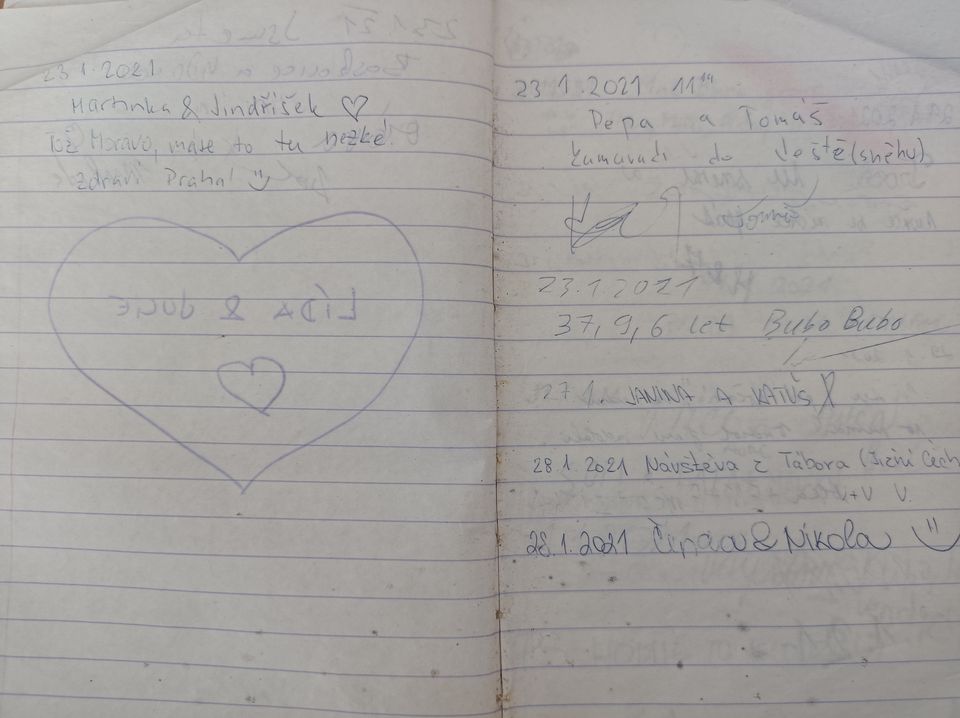 23.1.2021
Martinka & Jindříšek ♡
Tož Moravo, máte to tu hezké!
Zdraví Praha!
LÍDA & JUCE
23.1.2021 11
Pepa a Tomáš
kamarádi do deště (sněhu)
Tomáš
23.1.2021
37, 9, 6 let Bubo Bubo
27.1. JANINA A KATUŠ
28.1.2021 Návštěva z Tábora (Jižní Čech
V+V V.
28.1.2021 & Nikola